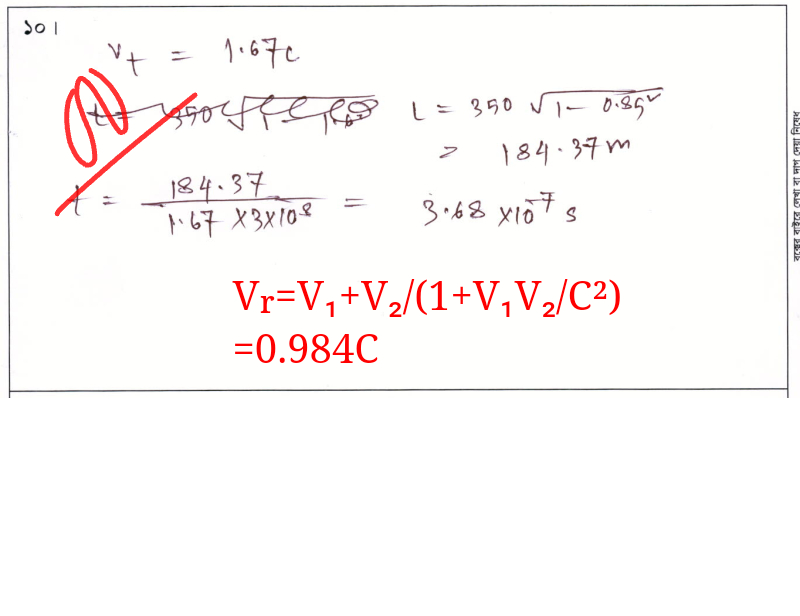 ১০।
V_t = 1.67c
L = 350 √(1 - 0.85²)
= 184.37 m
t = 184.37 / (1.67 × 3×10⁸) = 3.68 ×10⁻⁷ s
Vᵣ=V₁+V₂/(1+V₁V₂/C²)
=0.984C
বক্সের বাইরে লেখা বা দাগ দেয়া নিষেধ